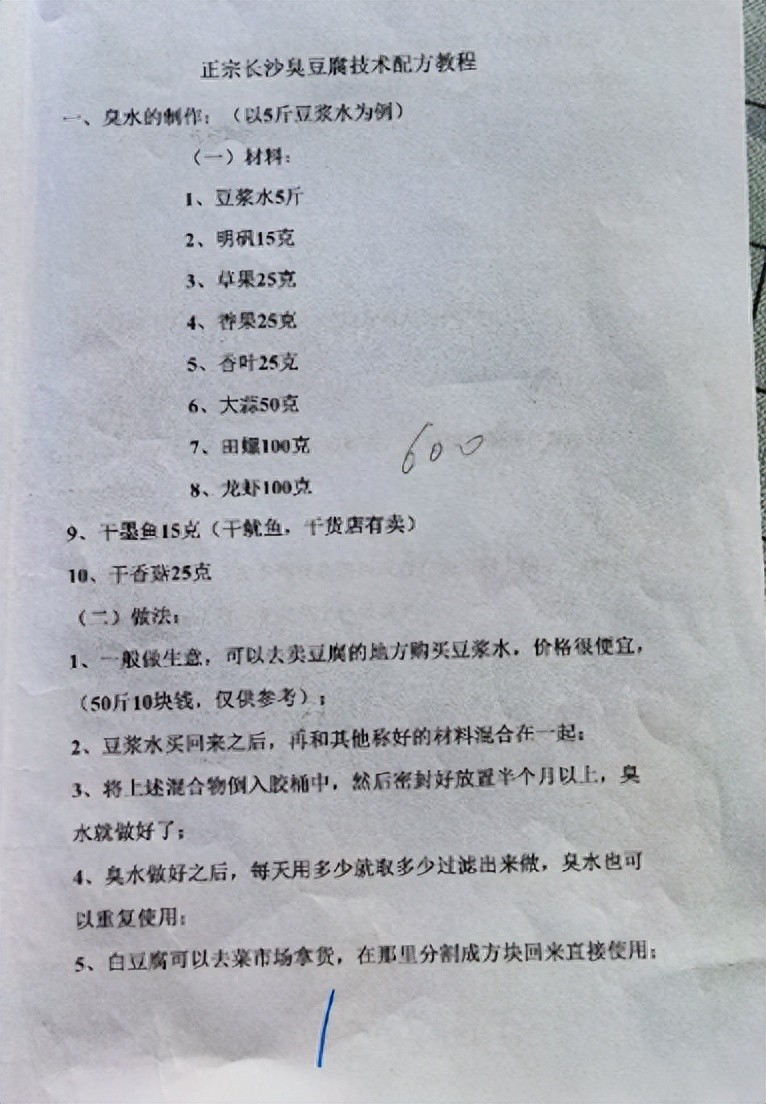 正宗长沙臭豆腐技术配方教程
一、臭水的制作：（以5斤豆浆水为例）
（一）材料：
1、豆浆水5斤
2、明矾15克
3、草果25克
4、香果25克
5、香叶25克
6、大蒜50克
7、田螺100克
600
8、龙虾100克
9、干墨鱼15克（干鱿鱼，干货店有卖）
10、干香菇25克
（二）做法：
1、一般做生意，可以去卖豆腐的地方购买豆浆水，价格很便宜，
（50斤10块钱，仅供参考）；
2、豆浆水买回来之后，再和其他称好的材料混合在一起；
3、将上述混合物倒入胶桶中，然后密封好放置半个月以上，臭
水就做好了；
4、臭水做好之后，每天用多少就取多少过滤出来做，臭水也可
以重复使用；
5、白豆腐可以去菜市场拿货，在那里分割成方块回来直接使用；